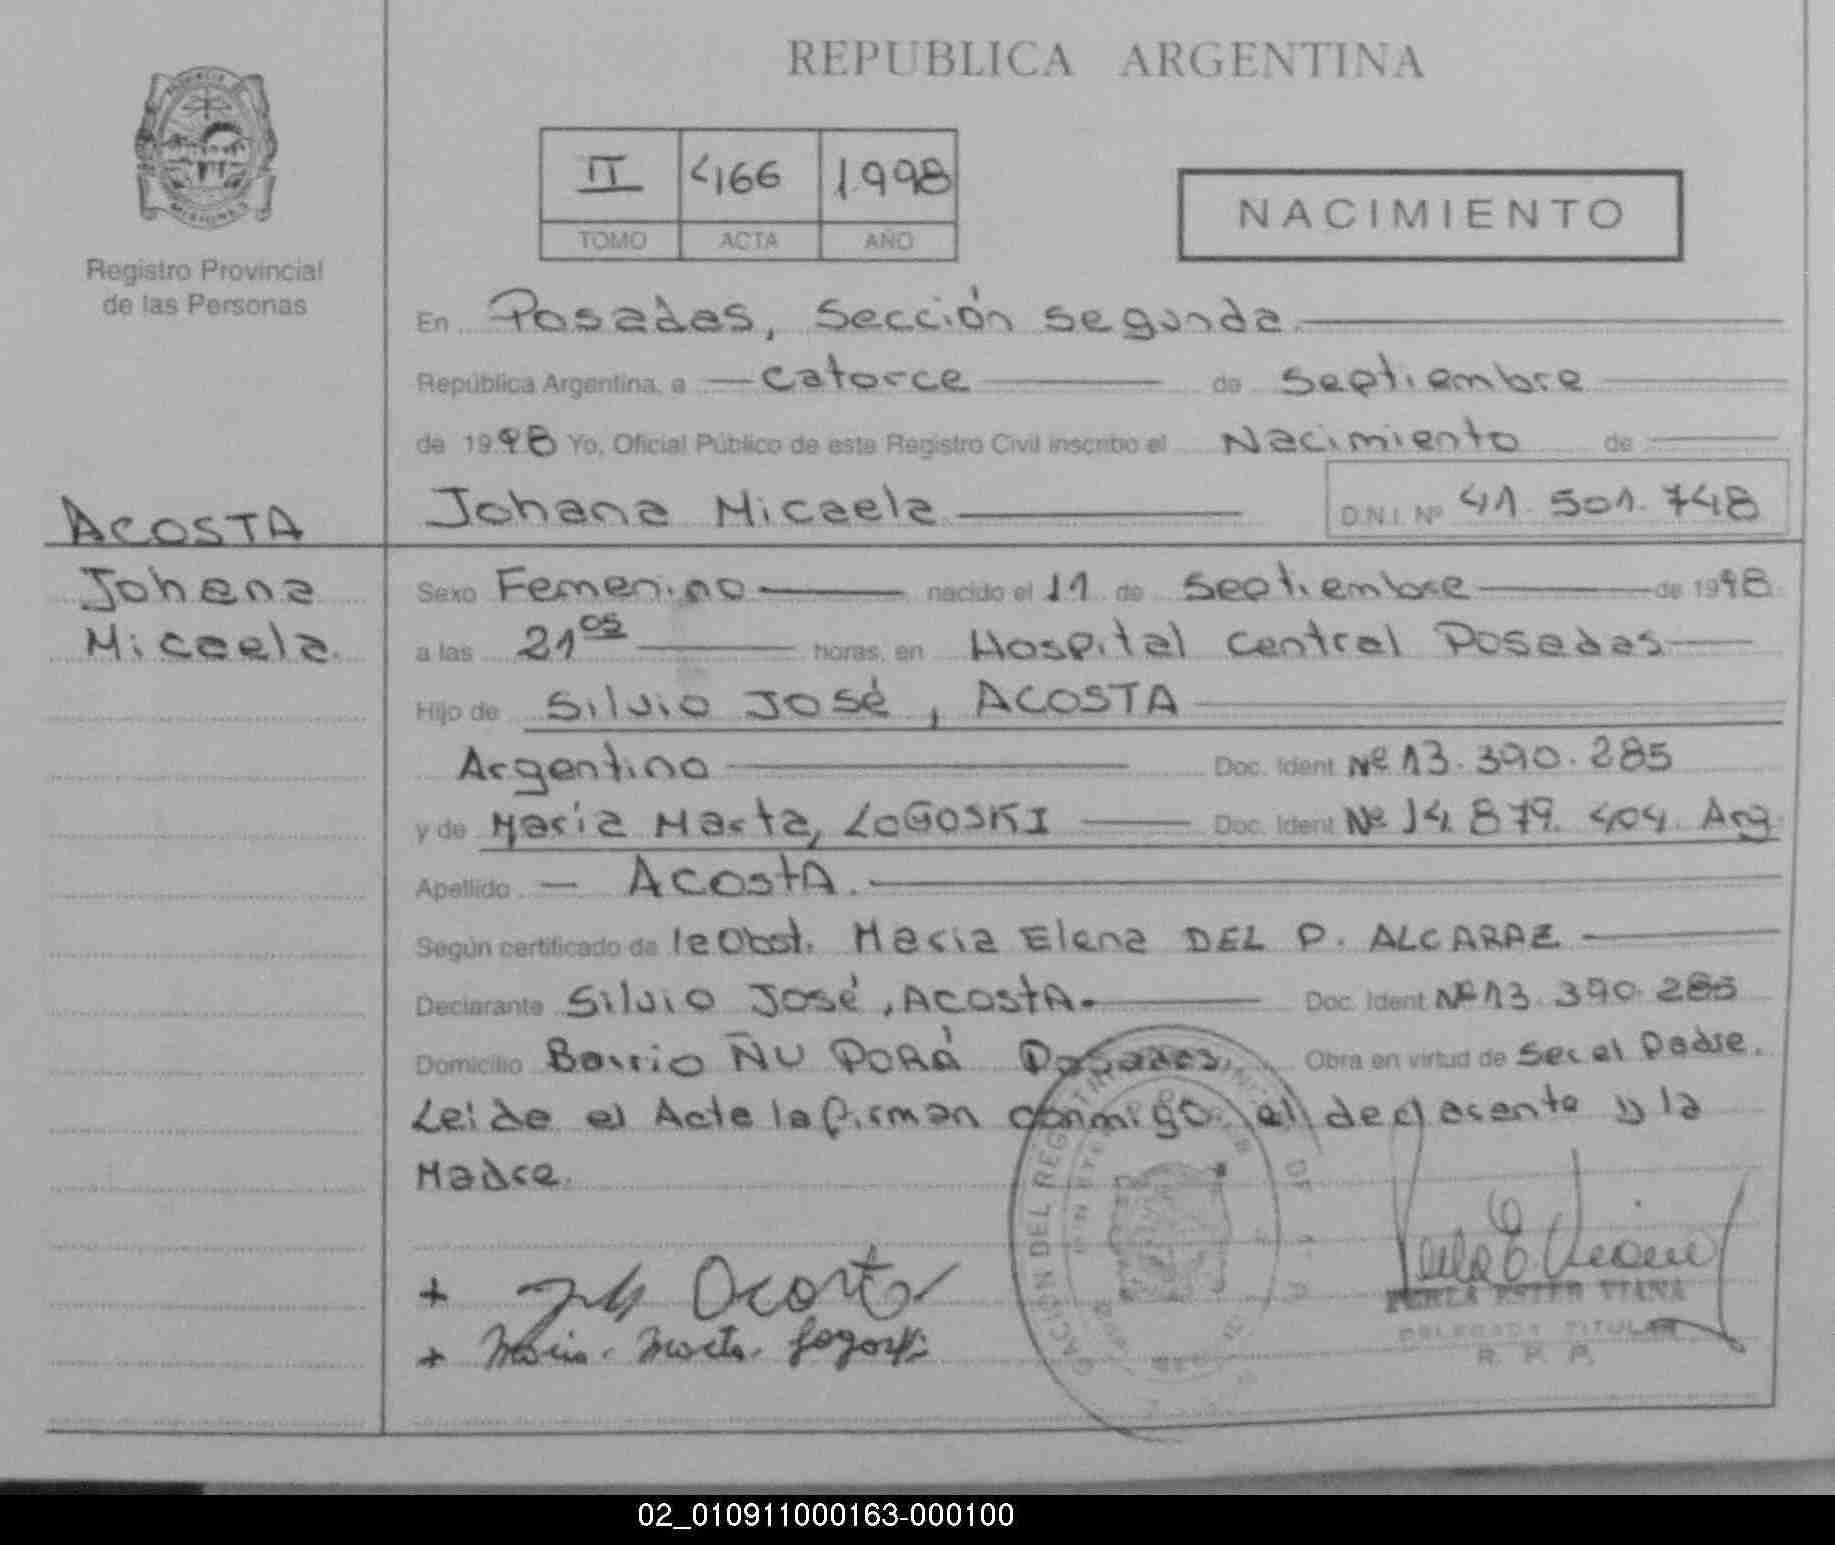 REPUBLICA ARGENTINA
MISIONES
Registro Provincial
de las Personas
II 466 1998
TOMO ACTA AÑO
NACIMIENTO
En Posadas, Sección segunda
República Argentina, a catorce de septiembre
de 1998 Yo, Oficial Público de este Registro Civil inscribo el Nacimiento de
ACOSTA
Johana Micaela D.N.I. Nº 41.501.748
Johana
Micaela.
Sexo Femenino nacido el 11 de Septiembre de 1998
a las 21 05 horas, en Hospital Central Posadas
Hijo de Silvio José, ACOSTA
Argentino Doc. Ident Nº 13.390.285
y de María Marta, LOGOSKI Doc. Ident Nº 14.879.404. Arg
Apellido ACOSTA.
Según certificado de la Obst. Maria Elena DEL P. ALCARAZ
Declarante Silvio José, ACOSTA. Doc. Ident Nº 13.390.285
Domicilio Barrio ÑU PORÁ Posadas, Obra en virtud de ser el Padre.
Leida el Acta la firman conmigo el declarante y la
Madre.
+ Acosta
+ Maria. Marta. Logoski
PERLA ESTER VIANA
DELEGADA TITULAR
R. P. P.
02_010911000163-000100